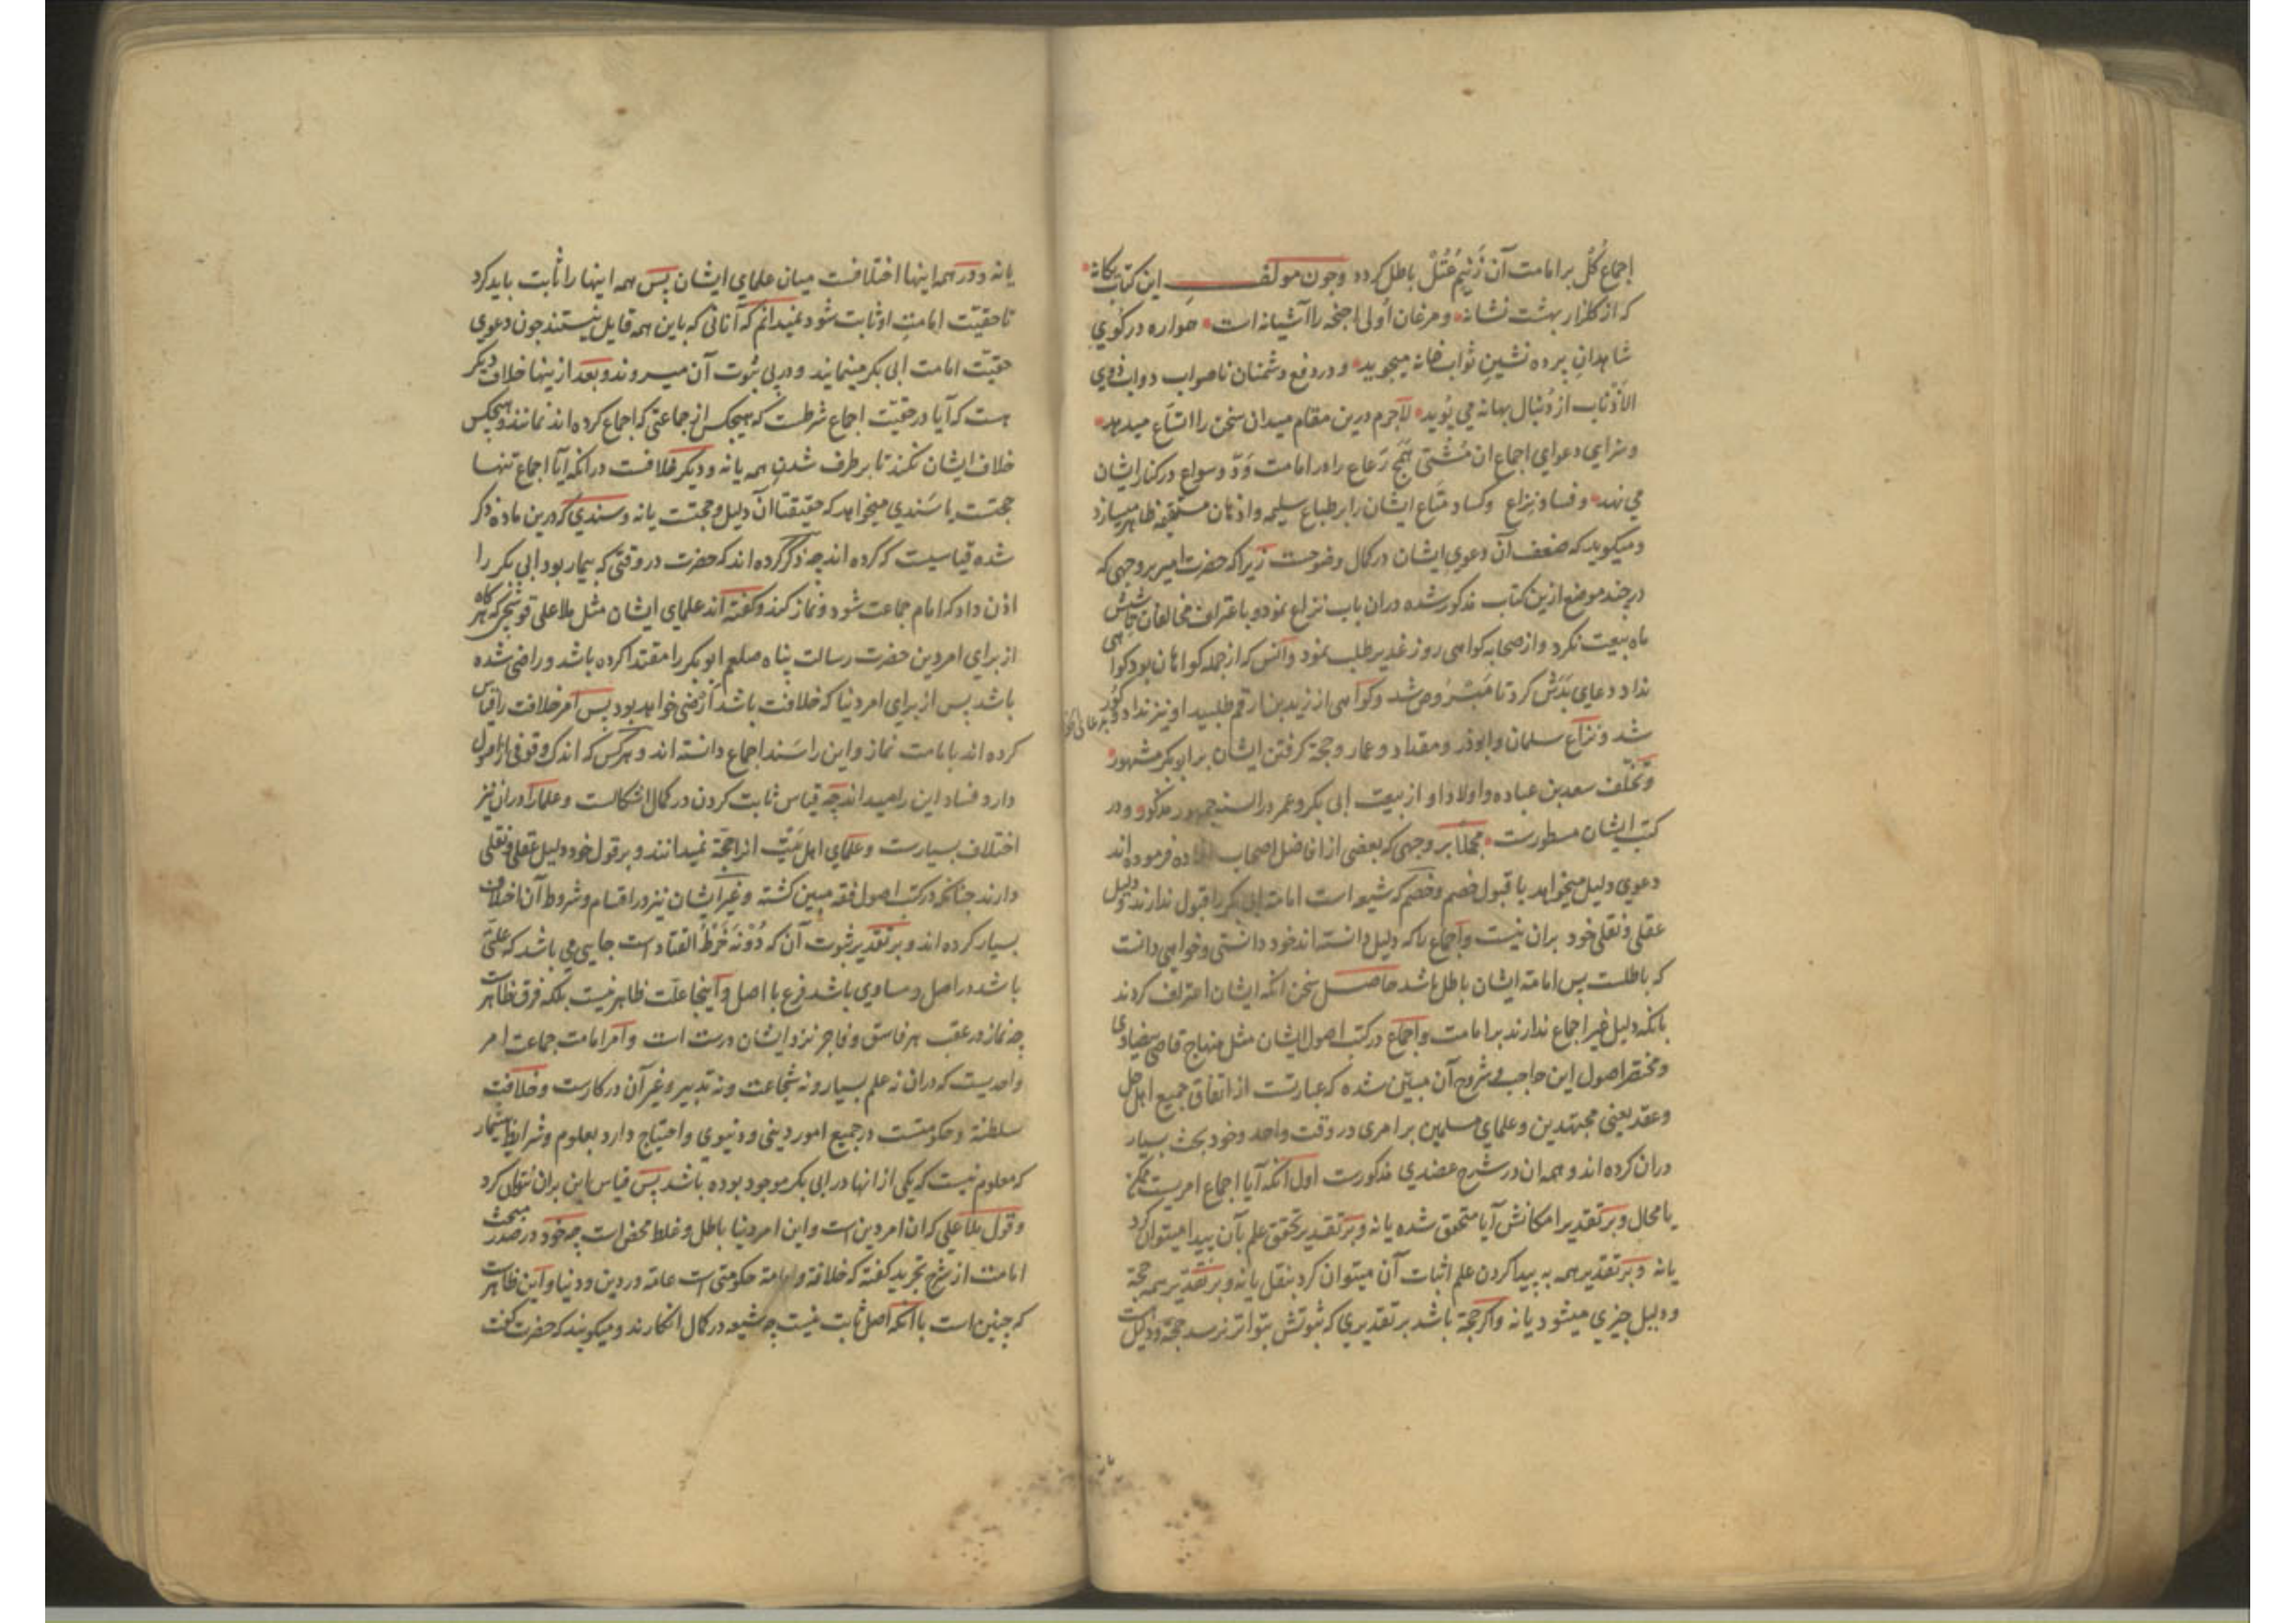 اجماع کُل بر امامت آن زَنیم عُتُلّ باطل کرده و چون مولف این کتاب یکانه
که از کلزار بهشت نشانه و مرغان اولی اجنحه را آشیانه است همواره در کوی
شاهدان پرده نشین ثواب خانه میجوید و در دفع دشمنان ناصواب دواب ذوی
الاذناب از دنبال بهانه می پوید لاجرم درین مقام میدان سخن را اتساع میدهد
و سزای دعوای اجماع ان مُشتی همج رَعاع را در امامت وَدّ و سواع در کنار ایشان
می نهد و فساد نزاع و کساد متاع ایشان را بر طباع سلیمه و اذهان مستقیمه ظاهر میسازد
و میکوید که ضعف آن دعوی ایشان در کمال وضوحست زیرا که حضرت امیر بر وجهی که
در چند موضع ازین کتاب مذکور شده دران باب نزاع نمود و باعتراف مخالفان تا شش
ماه بیعت نکرد و از صحابه کواهی روز غدیر طلب نمود و آنس که از جمله کواهان بود کواهی
نداد دعای بدش کرد تا مبروص شد و کواهی از زید بن ارقم طلبید او نیز نداد کور
شد و نزاع سلمان و ابوذر و مقداد و عمار و حجة کرفتن ایشان بر ابوبکر مشهور
و تخلف سعد بن عباده و اولاد او از بیعت ابی بکر و عمر در السنه جمهور مذکور و در
کتب ایشان مسطورست مجملا بر وجهی که بعضی از افاضل اصحاب افاده فرموده اند
دعوی دلیل میخواهد یا قبول خصم و خصم که شیعه است امامة ابی بکر را قبول ندارند و دلیل
عقلی و نقلی خود بران نیست و اجماع را که دلیل دانسته اند خود دانستی و خواهی دانست
که باطلست پس امامة ایشان باطل باشد حاصل سخن انکه ایشان اعتراف کردند
بانکه دلیل غیر اجماع ندارند بر امامت و اجماع در کتب اصول ایشان مثل منهاج قاضی بیضاوی
و مختصر اصول ابن حاجب و شروح آن مبیّن شده که عبارتست از اتفاق جمیع اهل حل
و عقد یعنی مجتهدین و علمای مسلمین بر امری در وقت واحد و خود بحث بسیار
دران کرده اند و همه ان در شرح عضدی مذکورست اول انکه آیا اجماع امریست ممکن
یا محال و بر تقدیر امکانش آیا متحقق شده یا نه و بر تقدیر تحقق علم بآن پیدا میتوان کرد
یا نه و بر تقدیر همه به پیدا کردن علم اثبات آن میتوان کرد بنقل یا نه و بر تقدیر همه حجة
و دلیل چیزی میشود یا نه و اکر حجة باشد بر تقدیری که ثبوتش بتواتر نرسد حجة و دلیلست
یا نه و در همه اینها اختلافست میان علمای ایشان پس همه اینها را ثابت باید کرد
تا حقیّت امامت او ثابت شود نمیدانم که آنانی که باین همه قایل نیستند چون دعوی
حقیّت امامت ابی بکر مینمایند و در پی ثبوت آن میروند و بعد از ینها خلاف دیکر
هست که آیا در حقیّت اجماع شرطست که هیچکس از جماعتی که اجماع کرده اند نمانند و هیچکس
خلاف ایشان نکند تا بر طرف شدن همه یا نه و دیکر خلافست در انکه آیا اجماع تنها
حجتست یا سَندی میخواهد که حقیقتا آن دلیل و حجتست یا نه و سندی که درین ماده ذکر
شده قیاسیست که کرده اند چه ذکر کرده اند که حضرت در وقتی که بیمار بود ابی بکر را
اذن داد که امام جماعت شود و نماز کند و کفته اند علمای ایشان مثل ملا علی قوشجی که هر کاه
از برای امر دین حضرت رسالت پناه صلعم ابوبکر را مقتدا کرده باشد و راضی شده
باشد پس از برای امر دنیا که خلافت باشد ارضی خواهد بود پس امر خلافت را قیاس
کرده اند بامامت نماز و این را سَند اجماع دانسته اند و هر کس که اندک وقوفی از اصول
دارد فساد این را میداند چه قیاس ثابت کردن در کمال اشکالست و علما را دران نیز
اختلاف بسیارست و علمای اهل بَیت انرا حجّة نمیدانند و بر قول خود دلیل عقلی و نقلی
دارند چنانکه در کتب اصول فقه مبین کشته و غیر ایشان نیز در اقسام و شروط آن اختلاف
بسیار کرده اند و بر تقدیر ثبوت آن که دُونَه خَرْطُ القتاد است جایی می باشد که علتی
باشد در اصل و مساوی باشد فرع با اصل و آینجا علّت ظاهر نیست بلکه فرق ظاهرست
چه نماز در عقب هر فاسق و فاجر نزد ایشان درست است و آمر امامت جماعت امر
واحدیست که دران نه علم بسیار و نه شجاعت و نه تدبیر و غیر آن در کارست و خلافت
سلطنة و حکومتست در جمیع امور دینی و دنیوی و احتیاج دارد بعلوم و شرایط بیشمار
که معلوم نیست که یکی از انها در ابی بکر موجود بوده باشد پس قیاس این بران نتوان کرد
و قول ملا علی که ان امر دین است و این امر دنیا باطل و غلط محض است چه خود در صدر مبحث
امامت از شرح تجرید کفته که خلافة و امامة حکومتی است عامه در دین و دنیا و این ظاهرست
که چنین است با آنکه اصل ثابت نیست چه شیعه در کمال انکارند و میکویند که حضرت کفت